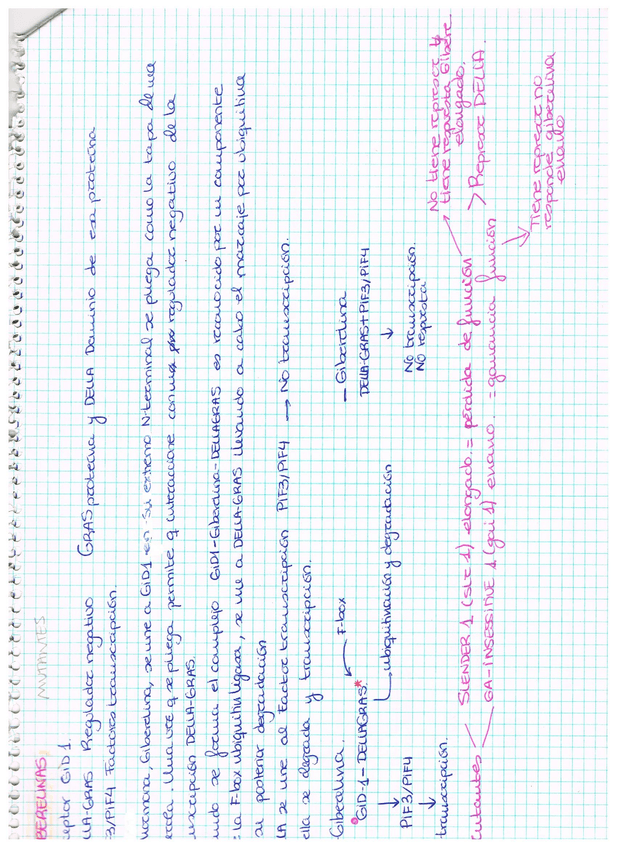 BERELINAS MUTANTES
eptor GID1.
LLA-GRAS Regulador negativo GRAS proteína y DELLA Dominio de esa proteína
3/PIF4 Factores transcripción.
hormona, Giberelina, se une a GID1 en su extremo N-terminal se pliega como la tapa de una
. Una vez q se pliega permite q interaccione con una regulador negativo de la
nscripción DELLA-GRAS.
ndo se forma el complejo GID1-Giberelina-DELLAGRAS es reconocido por un componente
la F-box ubiquitin ligasa, se une a DELLA-GRAS llevando a cabo el marcaje por ubiquitina
su posterior degradación
LA se une al Factor transcripción PIF3/PIF4 → No transcripción.
ella se degrada y transcripción.
Giberelina. — Giberelina
GID-1-DELLAGRAS* ← F-box DELLA-GRAS+PIF3/PIF4
↓ ubiquitinación y degradación ↓
PIF3/PIF4 No transcripción
↓ No respuesta
transcripción.
utantes SLENDER 1 (slr 1) elongado = pérdida de función → No tiene represor
tiene respuesta Gibere.
elongado.
> Represor DELLA.
GA-INSESSITIVE 1 (gai 1) enano. = ganancia función
Tiene represor no
responde giberelina
enano